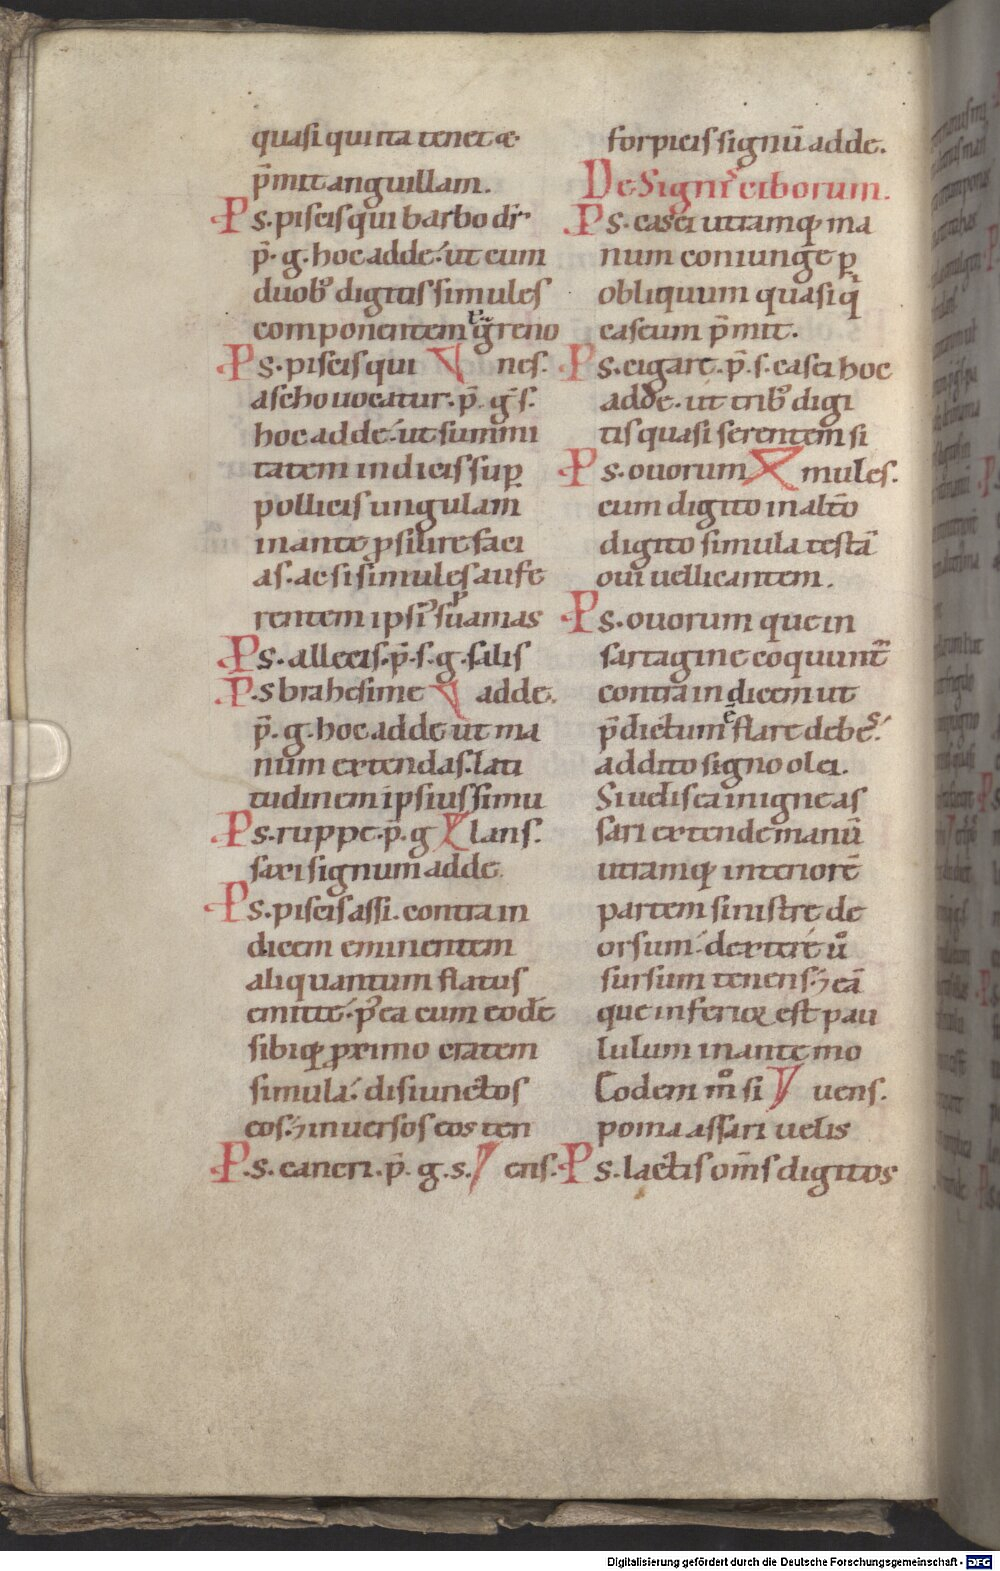 quasi quı ita tenet &
p̄mit anguillam.
Ps. piscis qui barbo dr̄
p̄. g. hoc adde. ut cum
duob; digitis simules
componentem ē ḡreno
Ps. piscis qui nes.
ascho uocatur. p̄. ḡ s.
hoc adde. ut summi
tatem indicis sup̱
pollicis ungulam
inante ꝓsilire faci
as. ac si simules aufe
rentem ipsi' suamas p
Ps. allecis. p̄. s. g. salis
P. s brahesime adde.
p̄. g. hoc adde ut ma
num extendas. lati
tudinem ipsius simu
Ps. ruppe. p̄. g lans.
saxi signum adde.
Ps. piscis assi. contra in
dicem eminentem
aliquantum flatus
emitte. p'ea cum eode
sibiq; ꝓximo etatem
simula. disiunctos
eos. ⁊ inuersos eos ten
P. s. cancri. p̄. g. s. ens.
forpicis signū adde.
De Signis ciborum.
Ps. casei utramq; ma
num coniunge ꝑ
obliquum quasi q̄
caseum p̄mit.
Ps. cigare. p̄. s. casei hoc
adde. ut trib; digi
tis quasi serentem si
Ps. ouorum mules.
cum digito in altō
digito simula testā
oui uellicantem.
Ps. ouorum que in
sartagine coquunt
contra indicem ut
p̄dictum ē flare debes.
addito signo olei.
Si uelis ea in igne as
sari extende manū
utramq; interiorē
partem sinistre de
orsum. dextere ū
sursum tenens. ⁊ eā
que inferior est pau
lulum inante mo
Eodem mo si uens.
poma assari uelis
Ps. lactis om̄s digitos
Digitalisierung gefördert durch die Deutsche Forschungsgemeinschaft - DFG